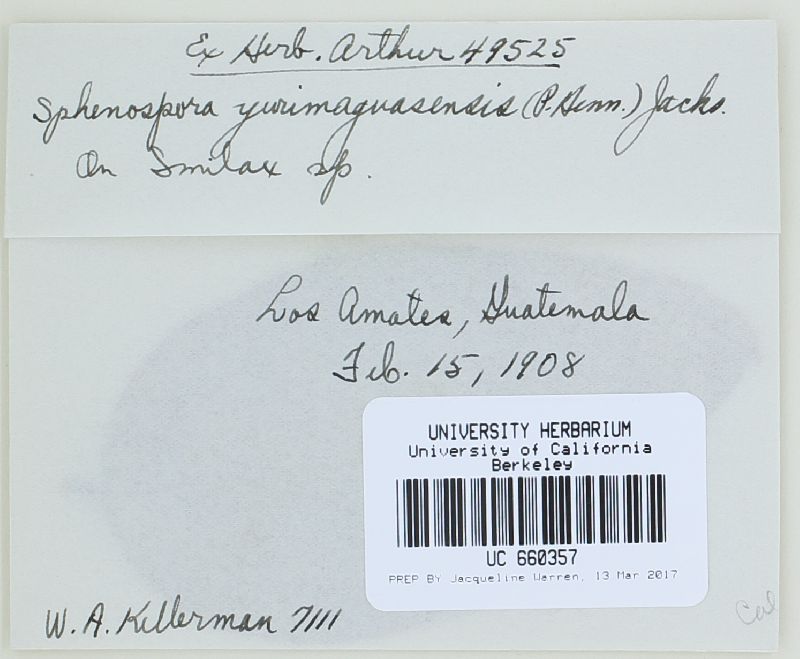 Ex Herb. Arthur 49525
Sphenospora yurimaguasensis (P. Henn.) Jacks.
On Smilax sp.
Los Amates, Guatemala
Feb. 15, 1908
UNIVERSITY HERBARIUM
University of California
Berkeley
UC 660357
PREP BY Jacqueline Warren, 13 Mar 2017
W. A. Kellerman 7111
Cal